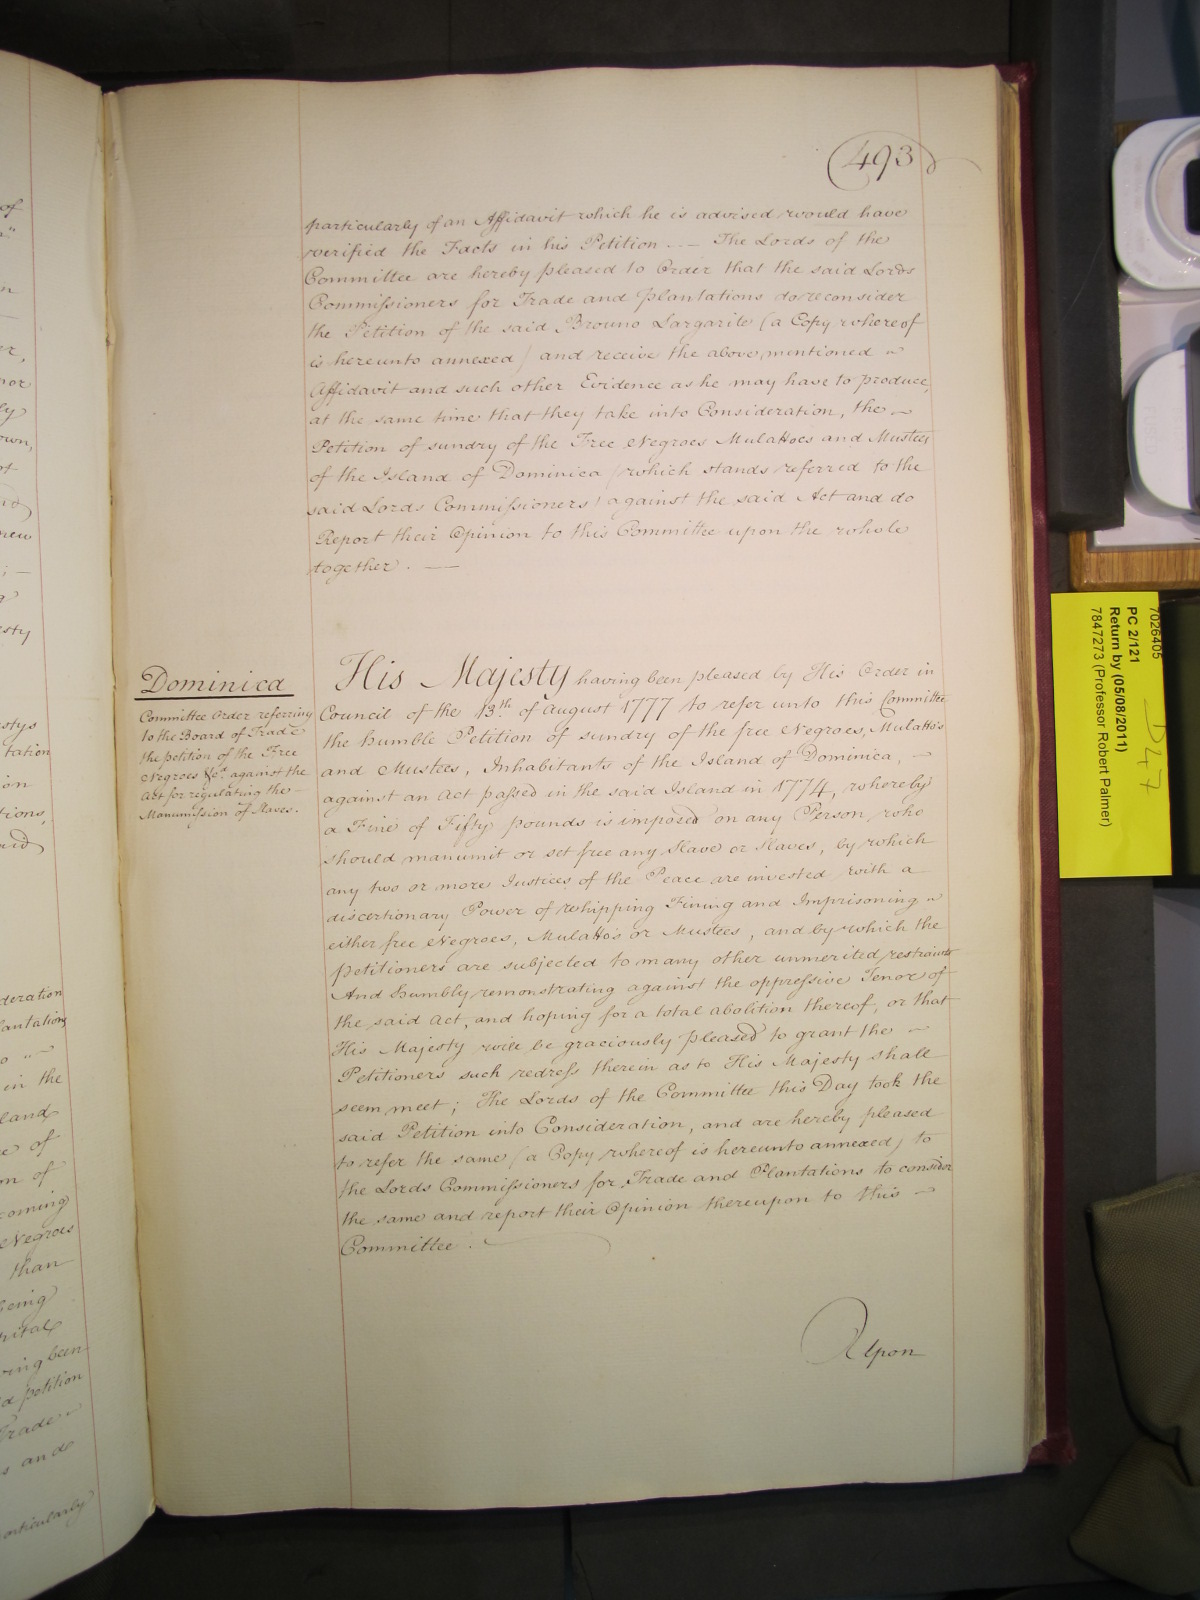 493
particularly of an Affidavit which he is advised would have
verified the Facts in his Petition . . — The Lords of the
Committee are hereby pleased to Order that the said Lords
Commissioners for Trade and Plantations do reconsider
the Petition of the said Brouno Largarite (a Copy whereof
is hereunto annexed) and receive the above mentioned
Affidavit and such other Evidence as he may have to produce,
at the same time that they take into Consideration, the
Petition of sundry of the Free Negroes Mulattoes and Mustees
of the Island of Dominica (which stands referred to the
said Lords Commissioners) against the said Act and do
Report their Opinion to this Committee upon the whole
together . —
Dominica
Committee Order referring
to the Board of Trade
the petition of the Free
Negroes &ca. against the
Act for regulating the
Manumission of Slaves.
His Majesty having been pleased by His Order in
Council of the 13th. of August 1777 to refer unto this Committee
the humble Petition of sundry of the free Negroes, Mulatto's
and Mustees, Inhabitants of the Island of Dominica, —
against an Act passed in the said Island in 1774, whereby
a Fine of Fifty pounds is imposed on any Person who
should manumit or set free any Slave or Slaves, by which
any two or more Justices of the Peace are invested with a
discertionary Power of whipping Fining and Imprisoning
either free Negroes, Mulatto's or Mustees, and by which the
petitioners are subjected to many other unmerited restraints
And humbly remonstrating against the oppressive Tenor of
the said Act, and hoping for a total abolition thereof, or that
His Majesty will be graciously pleased to grant the
Petitioners such redress therein as to His Majesty shall
seem meet; The Lords of the Committee this Day took the
said Petition into Consideration, and are hereby pleased
to refer the same (a Copy whereof is hereunto annexed) to
the Lords Commissioners for Trade and Plantations to consider
the same and report their Opinion thereupon to this
Committee .
Upon
7026405
PC 2/121
Return by (05/08/2011)
7847273 (Professor Robert Palmer)
D47
of
in
er,
nor
ly
own,
of
new
sty
stys
tation
on
tions,
aid
deration
lantations
o
in the
land
e of
n of
coming
Negroes
than
being
pital
ring been
d petition
Trade
s and
particularly